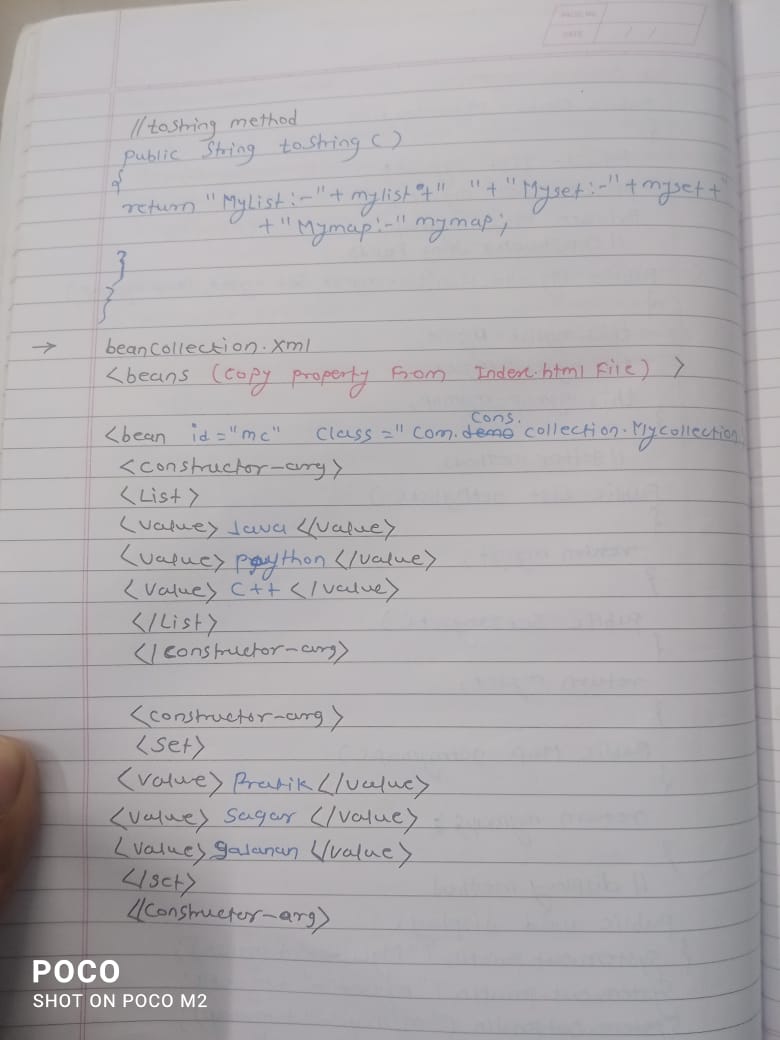 PAGE NO.
DATE
//toString method
public String toString ( )
{
return "MyList:-"+ mylist +" "+"Myset:-"+myset+"
+"Mymap:-" mymap;
}
}
→ beancollection.xml
<beans (copy property From Index.html File) >
cons.
<bean id="mc" class=" com.demo collection.Mycollection
<constructor-arg>
<List>
<value> Java </value>
<value> python </value>
<value> C++ </value>
</List>
</constructor-arg>
<constructor-arg>
<set>
<value> Pratik </value>
<value> sagar </value>
<value> gajanan </value>
</set>
</constructor-arg>
POCO
SHOT ON POCO M2